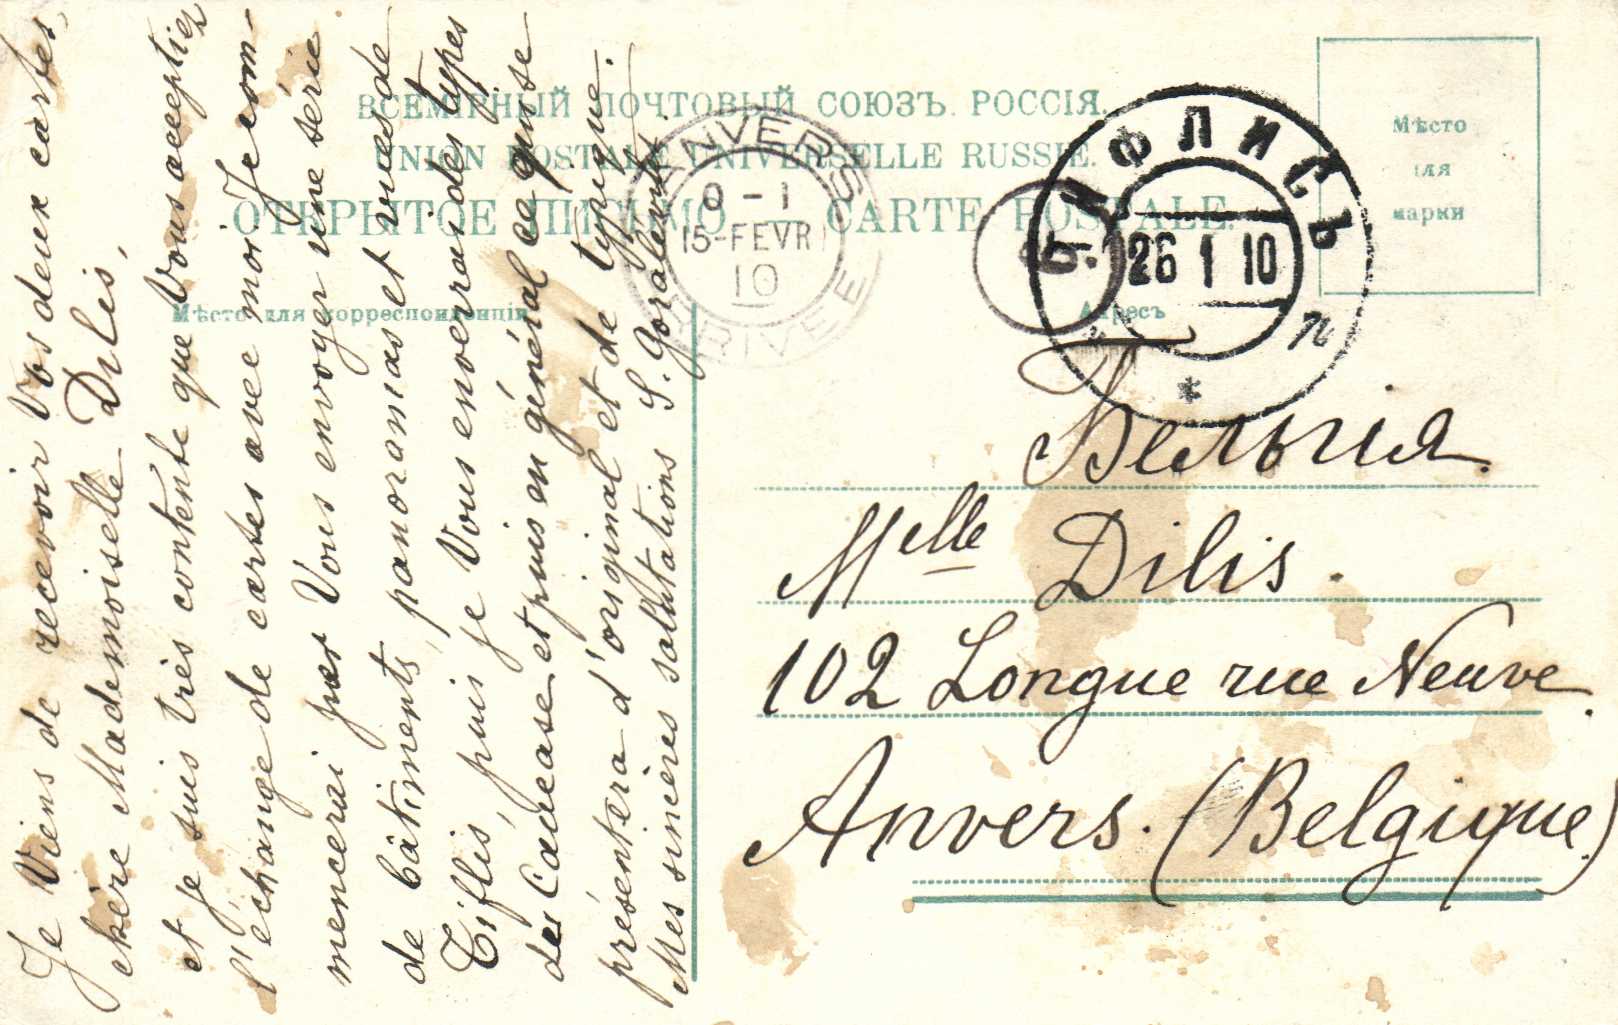 ВСЕМІРНЫЙ ПОЧТОВЫЙ СОЮЗЪ. РОССІЯ.
UNION POSTALE UNIVERSELLE RUSSIE.
ОТКРЫТОЕ ПИСЬМО — CARTE POSTALE.
Мѣсто
для
марки
Мѣсто для корреспонденціи
Адресъ
ANVERS
0 - 1
15-FEVR
10
ARRIVEE
ТИФЛИСЪ
26 1 10
Je Viens de recevoir Vos deux cartes,
chère Mademoiselle Dilis,
et je suis très contente que Vous acceptiez
l'échange de cartes avec moi. Je com-
mencerai par Vous envoyer une série
de bâtiments, panoramas et vues de
Tiflis, puis je Vous enverai des types
du Caucase et puis en général ce que se
présentera d'original et de typique.
Mes sincères salutations S.
Бельгія.
Melle Dilis.
102 Longue rue Neuve.
Anvers. (Belgique)